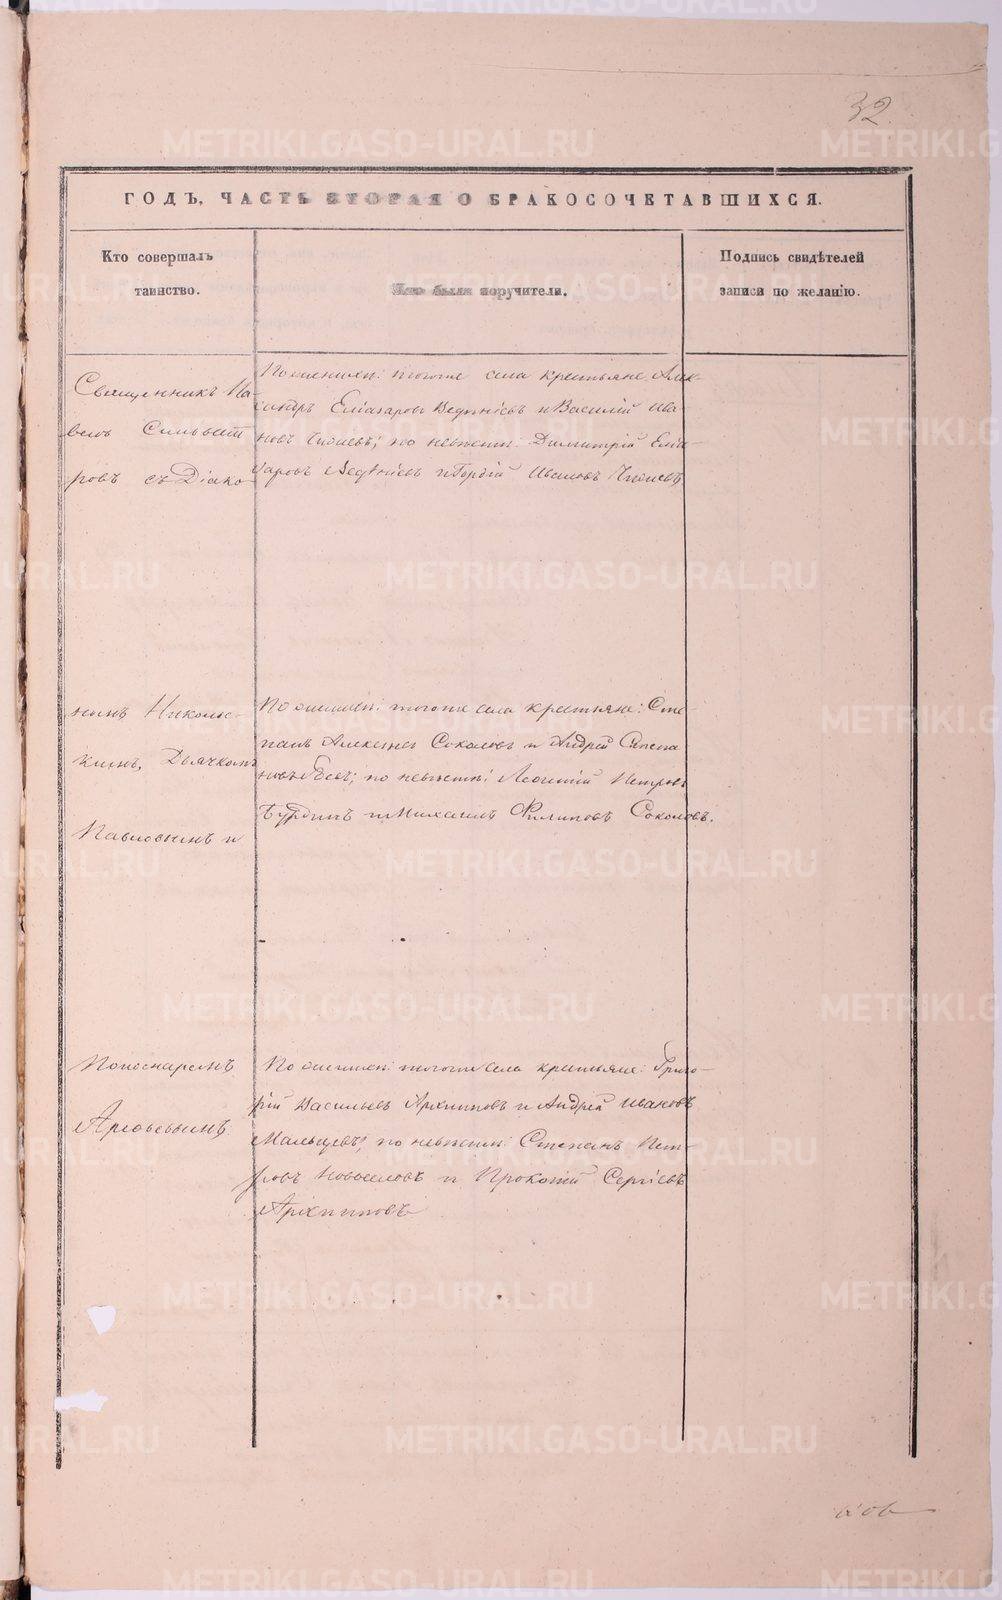 32.
ГОДЪ, ЧАСТЬ ВТОРАЯ О БРАКОСОЧЕТАВШИХСЯ.
Кто совершалъ
таинство.
Кто были поручители.
Подпись свидѣтелей
записи по желанію.
Священникъ Па-
велъ Сильвест
ровъ съ Діако-
По женихѣ: тогоже села крестьяне Алек-
сандръ Еліазаровъ и Василій Ива-
новъ по невѣстѣ: Димитрій Еліа-
заровъ и Гордій Ивановъ
номъ Никольс-
кимъ, Дьячкомъ
Павловымъ и
По женихѣ: тогоже села крестьяне: Сте-
панъ Алексѣевъ Соколовъ и Андрей Степа
новъ по невѣстѣ: Леонтій Петровъ
Бурдинъ и Михаилъ Филиповъ Соколовъ.
Пономаремъ
Арефьевымъ
По женихѣ: тогоже села крестьяне: Григо-
рій Васильевъ Архиповъ и Андрей Ивановъ
Мальцевъ, по невѣстѣ: Степанъ Пет-
ровъ Новоселовъ и Прокопій Сергіевъ
Архиповъ
METRIKI.GASO-URAL.RU